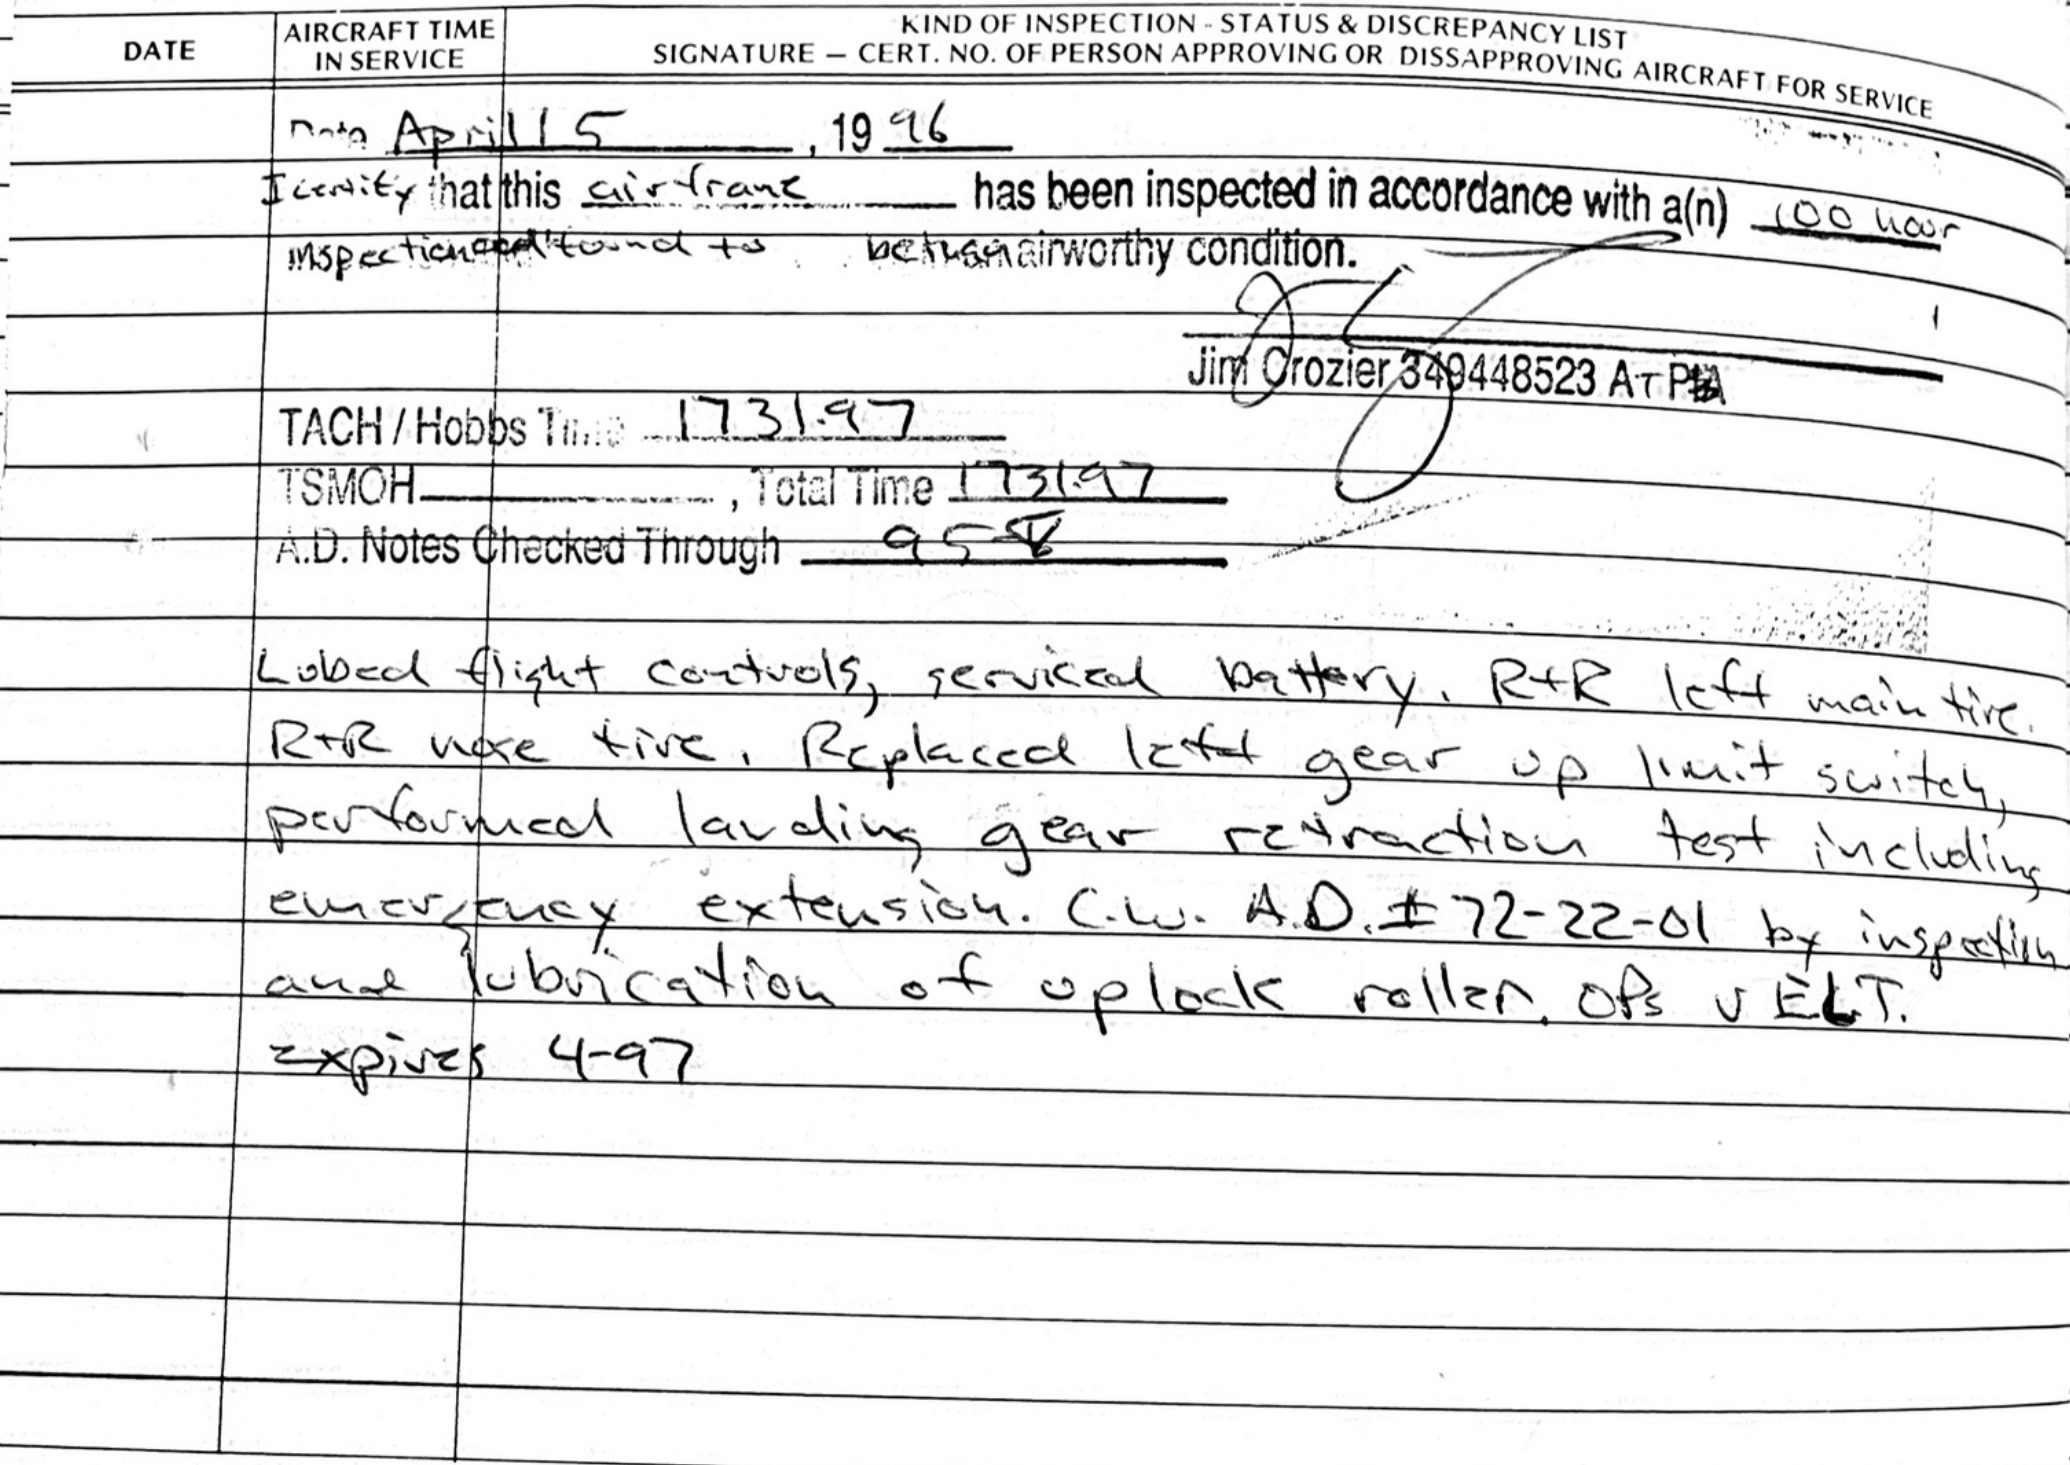 DATE
AIRCRAFT TIME
IN SERVICE
KIND OF INSPECTION - STATUS & DISCREPANCY LIST
SIGNATURE — CERT. NO. OF PERSON APPROVING OR DISSAPPROVING AIRCRAFT FOR SERVICE
Date April 15, 1996
I certify that this airframe has been inspected in accordance with a(n) 100 hour
inspection and found to be in an airworthy condition.
Jim Crozier 349448523 A+P
TACH / Hobbs Time 1731.97
TSMOH , Total Time 1731.97
A.D. Notes Checked Through 95
Lubed flight controls, serviced battery. R+R left main tire.
R+R nose tire. Replaced left gear up limit switch,
performed landing gear retraction test including
emergency extension. C.W. A.D. # 72-22-01 by inspection
and lubrication of uplock roller. Ops ELT.
expires 4-97